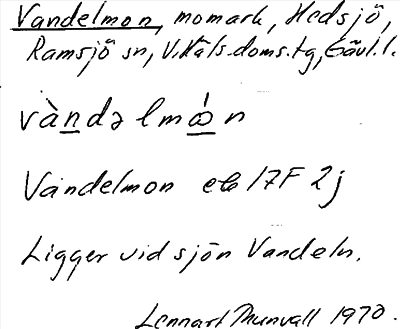 Vandelmon, momark, Hedsjö,
Ramsjö sn, V. Häls. doms. tg, Gävl. l.
vàndəlmón
Vandelmon ek 17F 2j
Ligger vid sjön Vandeln.
Lennart Munvall 1970.